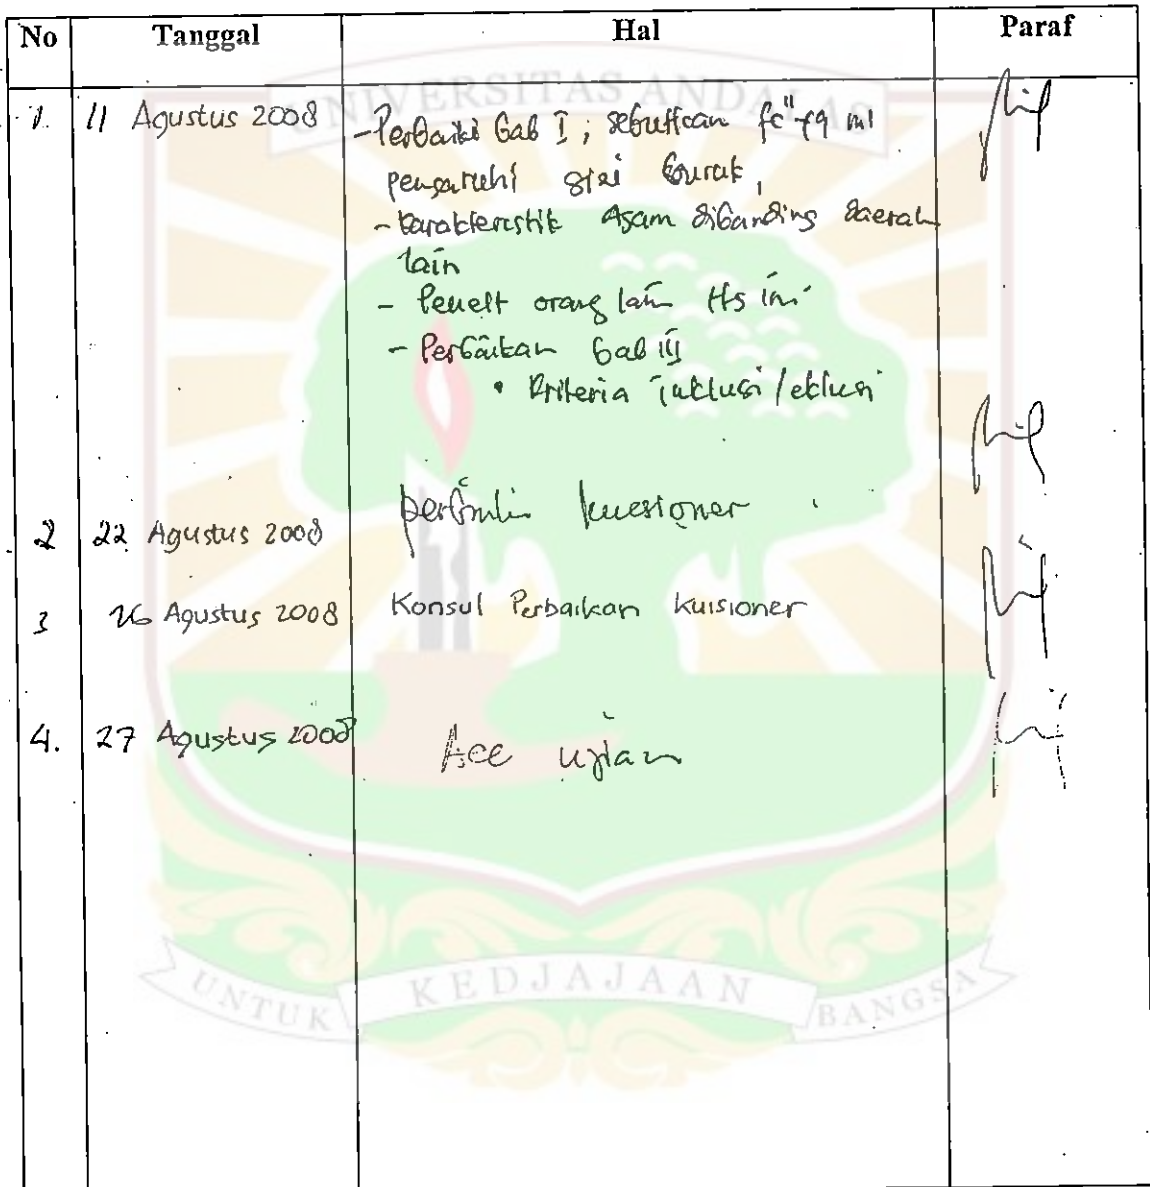 No Tanggal Hal Paraf
UNIVERSITAS ANDALAS
1. 11 Agustus 2008 - Perbaiki bab I ; sebutkan fc" yg
pengaruhi gizi buruk,
- karakteristik Agam dibanding daerah
lain
- Penelt orang lain ttg ini
- Perbaikan bab III
• Kriteria inklusi/eklusi
2 22 Agustus 2008 perbaiki kuesioner
3 26 Agustus 2008 Konsul Perbaikan kuisioner
4. 27 Agustus 2008 Acc ujian
UNTUK KEDJAJAAN BANGSA